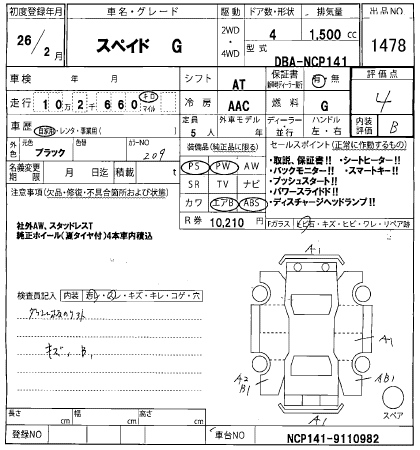 初度登録年月 車名・グレード 駆動 ドア数・形状 排気量 出品NO
26/2月 スペイド G 2WD・4WD 4 1,500 cc 1478
型式 DBA-NCP141
車検 年 月 シフト AT 保証書 有・無 評価点
走行 10万2千660 キロ マイル 冷房 AAC 燃料 G 4
車歴 自家用・レンタ・事業用( ) 定員 5人 外車モデル 年 ディーラー・並行 ハンドル 左・右 内装評価 B
外色 元色 ブラック 色替 カラーNO 209 装備品(純正品に限る) セールスポイント(正常に作動するもの)
名義変更期限 月 日 積載 t PS PW AW
・取説、保証書!!・シートヒーター!!
・バックモニター!!・スマートキー!!
注意事項(欠品・修復・不具合箇所および状態) SR TV ナビ
・プッシュスタート!!
・パワースライド!!
カワ エアB ABS ・ディスチャージヘッドランプ!!
社外AW、スタッドレスT
純正ホイール(夏タイヤ付)4本車内積込
R券 10,210 円 Fガラス ヒビ石・キズ・ヒビ・ワレ・リペア跡
検査員記入 内装 ・キズ・キレ・コゲ・穴
キズ、B1
A1
A1
A2
B1
AB1
A1
スペア
長さ cm 幅 cm 高さ cm
登録NO 車台NO NCP141-9110982